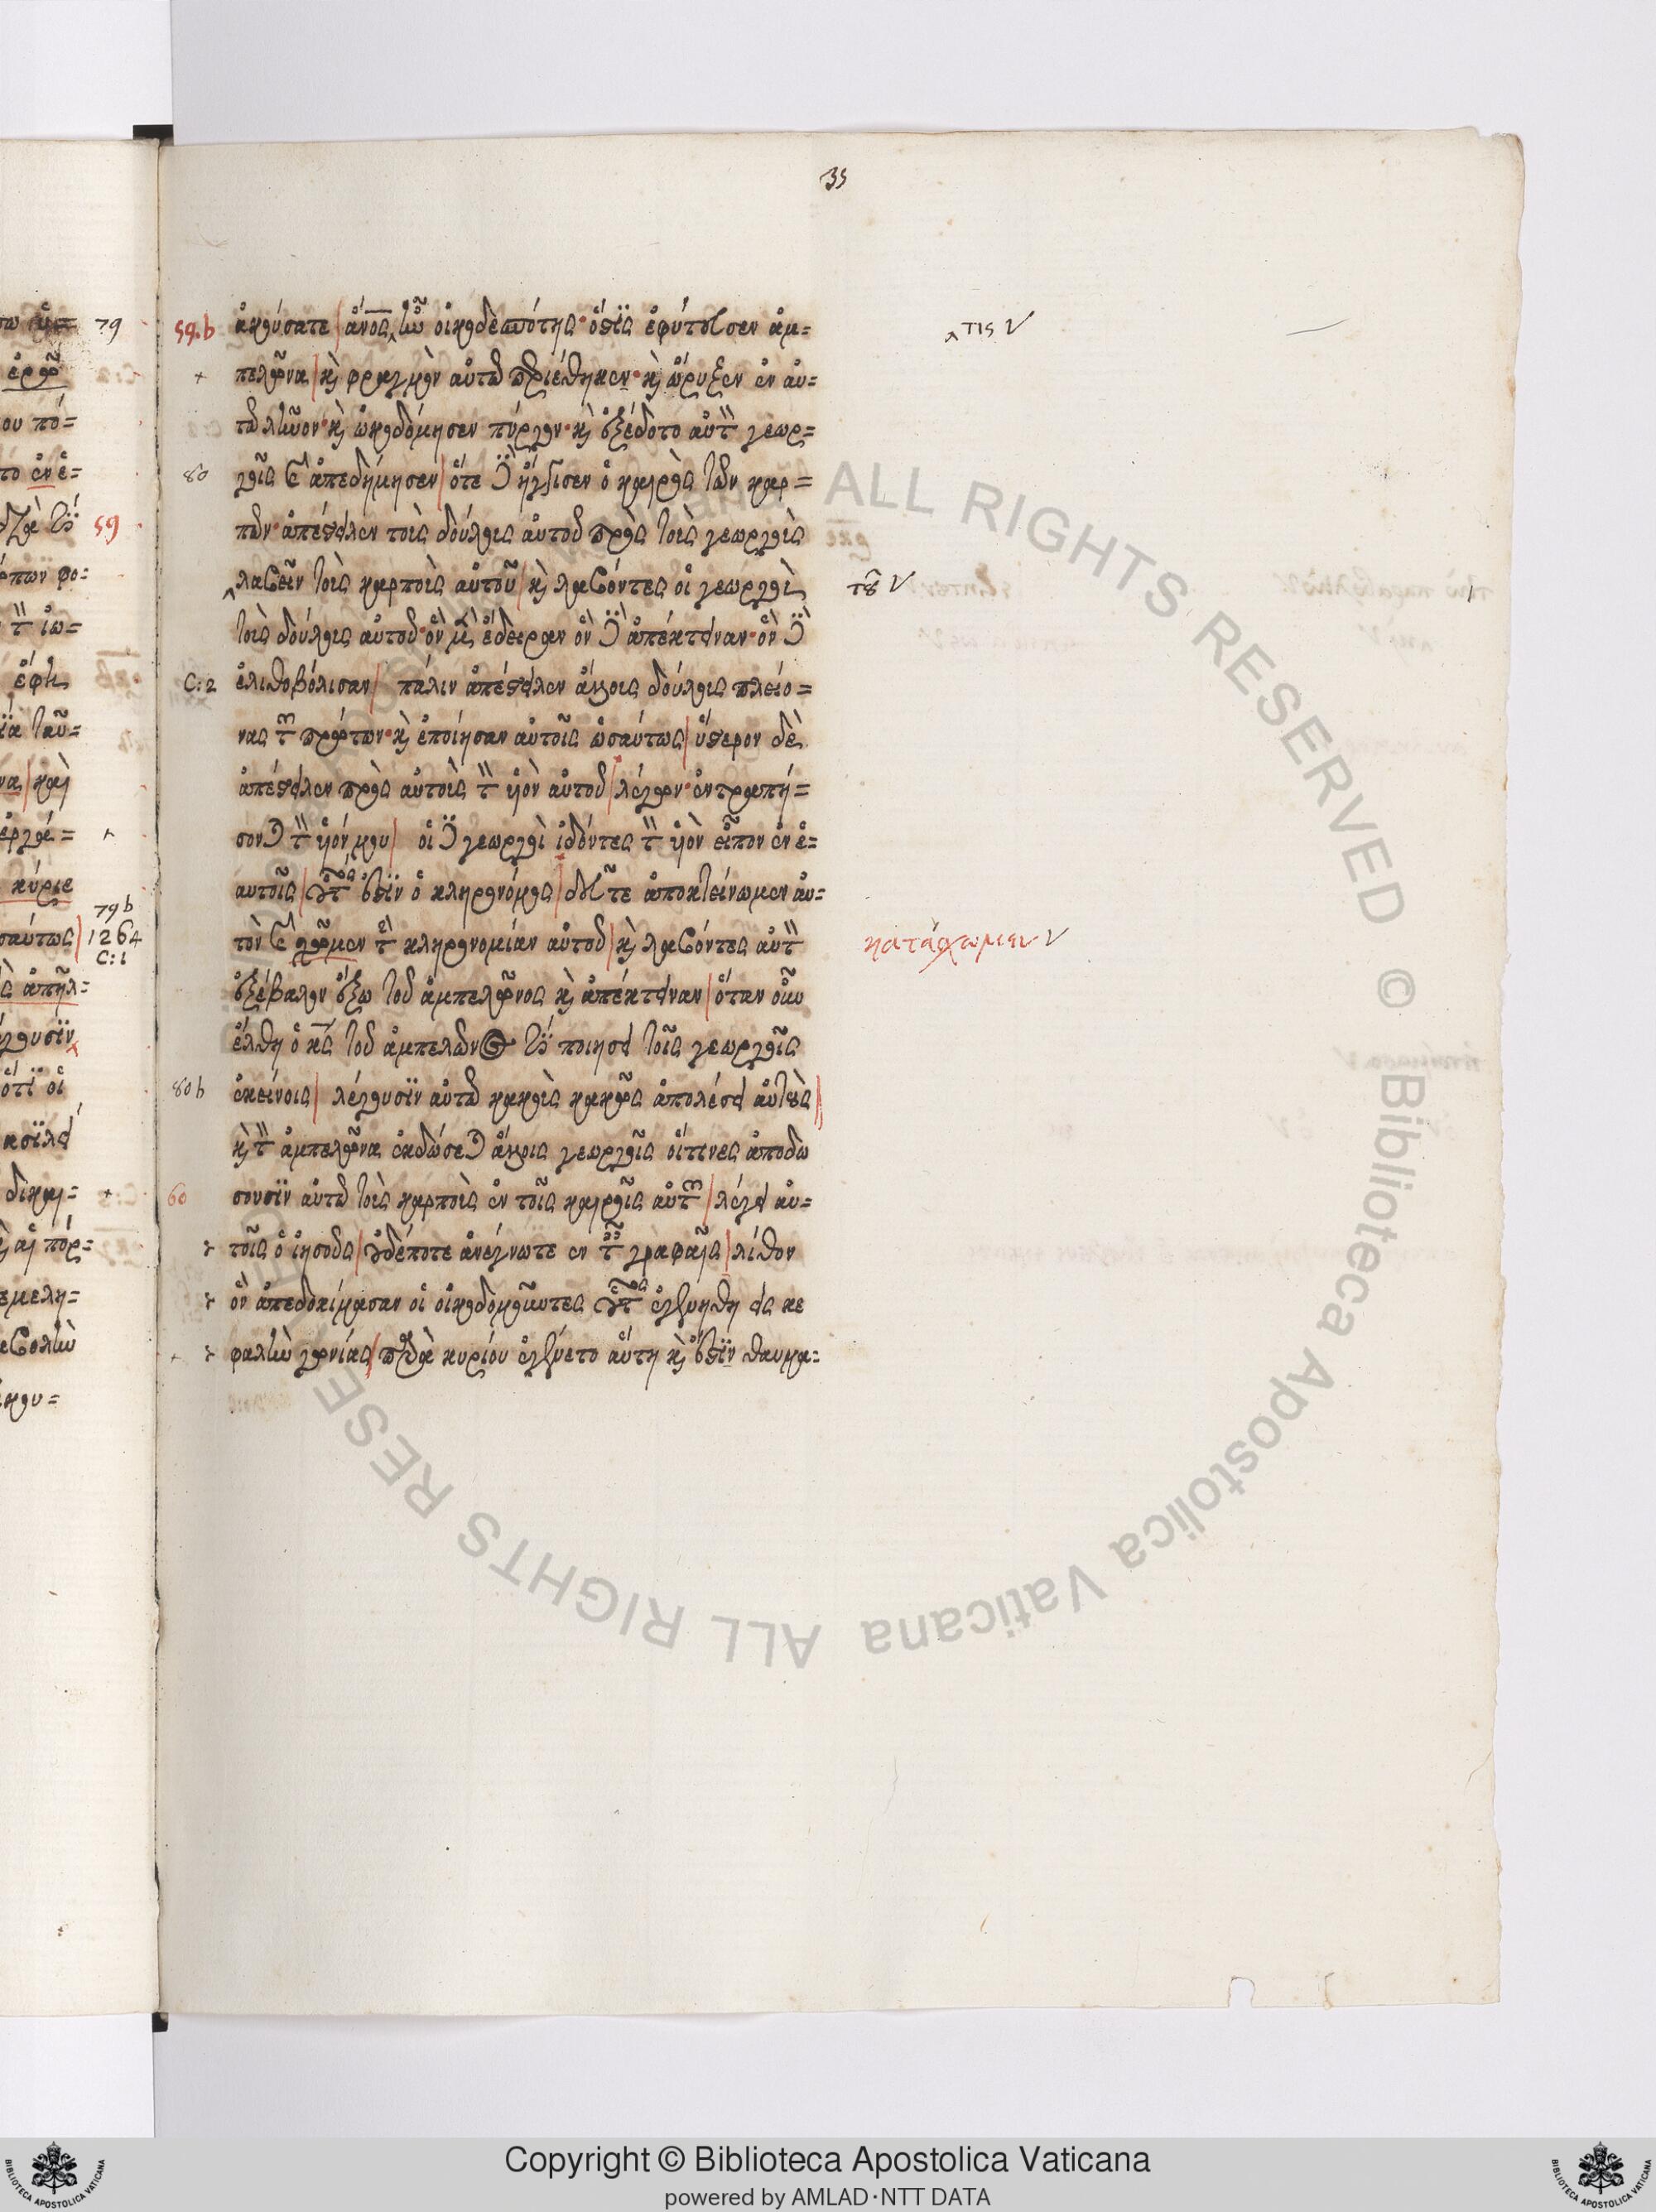 35
59.b ἀκούσατε | ἄνος, ἦν οἰκοδεσπότης· ὅστις ἐφύτευσεν ἀμ=
‸ τις
+ πελῶνα | κὶ φραγμὸν αὐτῶ περιέθηκεν· κὶ ὤρυξεν ἐν αὐ=
τῶ ληνον· κὶ ὠκοδόμησεν πύργον· κὶ ἐξέδοτο αὐτὸν γεωρ=
80 γοῖς καὶ ἀπεδήμησεν | ὅτε δὲ ἤγγισεν ὁ καιρὸς τῶν καρ=
πῶν· ἀπέστειλεν τοὺς δούλους αὐτοῦ πρὸς τοὺς γεωργοὺς
‸ λαβεῖν τοὺς καρποὺς αὐτοῦ | κὶ λαβόντες οἱ γεωργοὶ
τοῦ
τοὺς δούλους αὐτοῦ· ὃν μὲν ἔδειραν ὃν δὲ ἀπέκτειναν· ὃν δὲ
C:2 ἐλιθοβόλισαν | πάλιν ἀπέστειλεν ἄλλους δούλους πλείο=
νας τῶν πρώτων· κὶ ἐποίησαν αὐτοῖς ὡσαύτως | ὕστερον δὲ
ἀπέστειλεν πρὸς αὐτοὺς τὸν υἱὸν αὐτοῦ | λέγων· ἐντραπή=
σονται τὸν υἱόν μου | οἱ δὲ γεωργοὶ ἰδόντες τὸν υἱὸν εἶπον ἐν ἑ=
αυτοῖς | οὗτός ἐστιν ὁ κληρονόμος | δεῦτε ἀποκτείνωμεν αὐ=
τὸν καὶ σχῶμεν τὴν κληρονομίαν αὐτοῦ | κὶ λαβόντες αὐτὸν
κατάσχωμεν
ἐξέβαλον ἔξω τοῦ ἀμπελῶνος κὶ ἀπέκτειναν | ὅταν οὖν
ἔλθη ὁ κς τοῦ ἀμπελῶνος τί ποιήσει τοῖς γεωργοῖς
80b ἐκείνοις | λέγουσϊν αὐτῶ κακοὺς κακῶς ἀπολέσει αὐτοὺς |
κὶ τὸν ἀμπελῶνα ἐκδώσεται ἄλλοις γεωργοῖς οἵτινες ἀποδώ
60 σουσϊν αὐτῶ τοὺς καρποὺς ἐν τοῖς καιροῖς αὐτῶν | λέγει αὐ=
τοῖς ὁ ἰησοῦς | οὐδέποτε ἀνέγνωτε ἐν ταῖς γραφαῖς | λίθον
ὃν ἀπεδοκίμασαν οἱ οἰκοδομοῦντες οὗτος ἐγενήθη εἰς κε
φαλὴν γωνίας | παρὰ κυρίου ἐγένετο αὕτη κὶ ἔστϊν θαυμα=
79
59
79b
1264
C:1
Copyright © Biblioteca Apostolica Vaticana
powered by AMLAD·NTT DATA